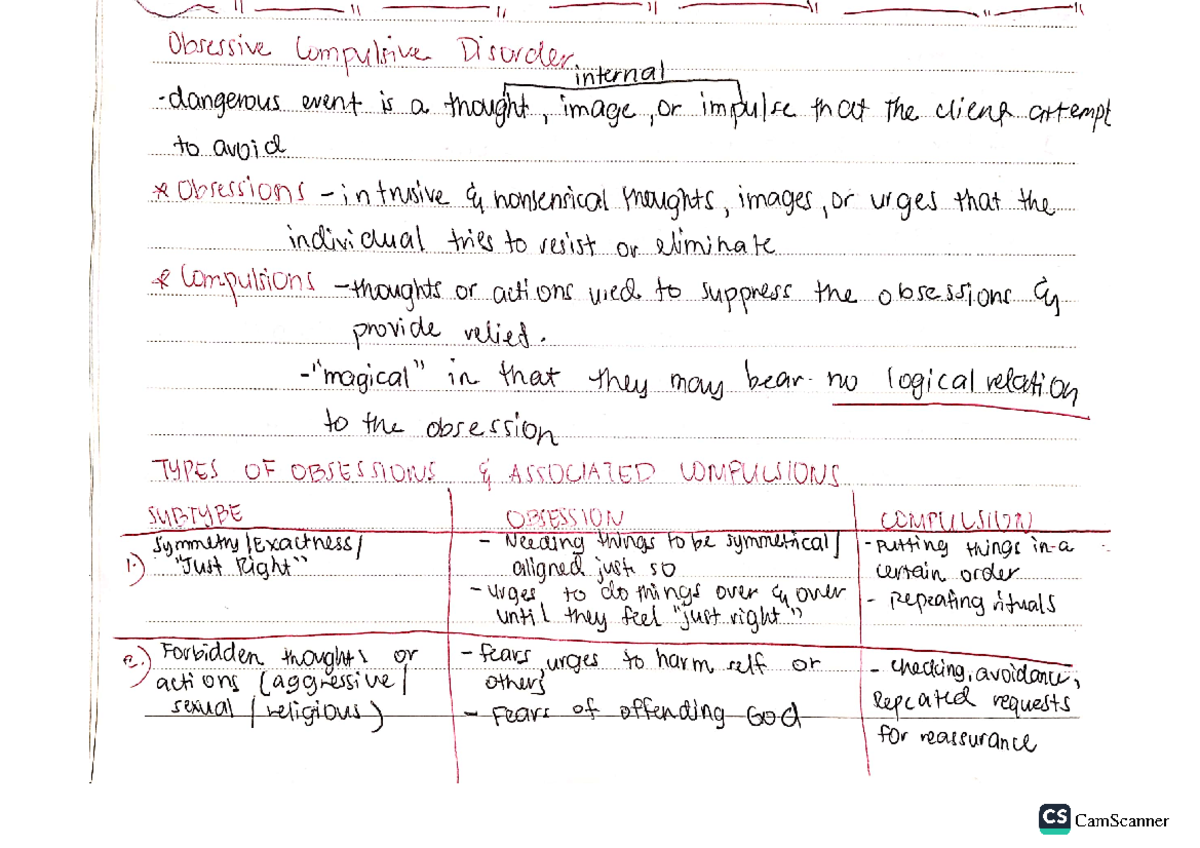 Obsessive Compulsive Disorder.
internal
-dangerous event is a thought, image, or impulse that the client attempt
to avoid
* Obsessions - intrusive & nonsensical thoughts, images, or urges that the
individual tries to resist or eliminate
* Compulsions - thoughts or actions used to suppress the obsessions &
provide relied.
-"magical" in that they may bear no logical relation
to the obsession
TYPES OF OBSESSIONS & ASSOCIATED COMPULSIONS
SUBTYPE OBSESSION COMPULSION
1.) Symmetry/Exactness/
"Just Right"
- Needing things to be symmetrical/
aligned just so
- urges to do things over & over
until they feel "just right"
- Putting things in a
certain order
- Repeating rituals
2.) Forbidden thoughts or
actions (aggressive/
sexual/religious)
- fears, urges to harm self or
others
- Fears of offending God
- checking, avoidance,
Repeated requests
for reassurance
CS CamScanner